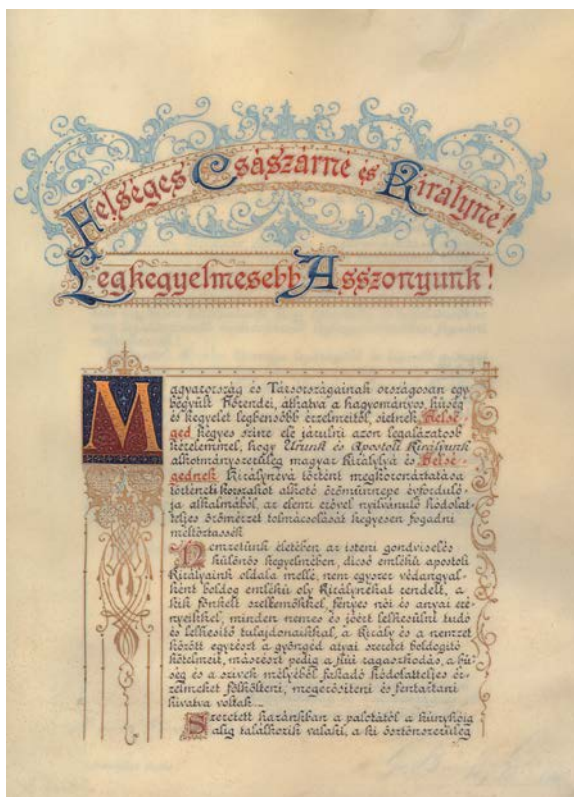 Felséges Császárné és Királyné!
Legkegyelmesebb Asszonyunk!
Magyarország és Társországainak országosan egy
begyűlt Főrendei, áthatva a hagyományos hűség
és kegyelet legbensőbb érzelmeitől, sietnek Felsé-
ged kegyes színe elé járulni azon legalázatosb
kérelemmel, hogy Urunk és Apostoli Királyunk
alkotmányszerűleg magyar Királylyá és Felsé-
gednek Királynévá történt megkoronáztatása
történeti korszakot alkotó örömünnepe évforduló-
ja alkalmából, az elemi erővel nyilvánuló hódolat-
teljes örömérzet tolmácsolását kegyesen fogadni
méltóztassék
Nemzetünk életében az isteni gondviselés
különös kegyelmében, dicső emlékű apostoli
Királyaink oldala mellé, nem egyszer védangyal-
ként boldog emlékű oly Királynékat rendelt, a
kik fönkelt szellemökkel, fényes női és anyai eré-
nyeikkel, minden nemes és jóért lelkesülni tudó
és lelkesítő tulajdonaikkal, a Király és a nemzet
között egyrészt a gyöngéd atyai szeretet boldogító
kötelmeit, másrészt pedig a fiúi ragaszkodás, a hű-
ség és a szívek mélyéből fakadó hódolatteljes ér-
zelmeket fölkölteni, megerősíteni és fentartani
hivatva voltak.
Szeretett hazánkban a palotától a kunyhóig
alig találkozik valaki, a ki ösztönszerűleg